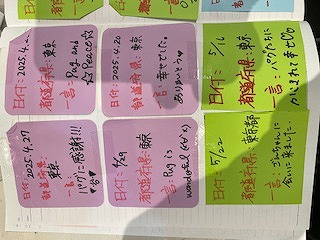 日付: 2025.4.27
都道府県: 東京
一言: パグに感謝!!!
日付: 2025.4.2
都道府県: 東京
一言: Pug and
☆Peace☆
日付:
都道府県: 東京
一言: Pug is
wonderful
日付: 2025.4.20
都道府県: 東京
一言: 幸せでした。
ありがとう♥
日付: 5/22
都道府県: 東京都
一言: ちゃんに
会いに来ました
日付: 5/16
都道府県: 東京
一言: パグたちに
かこまれて幸せ♡